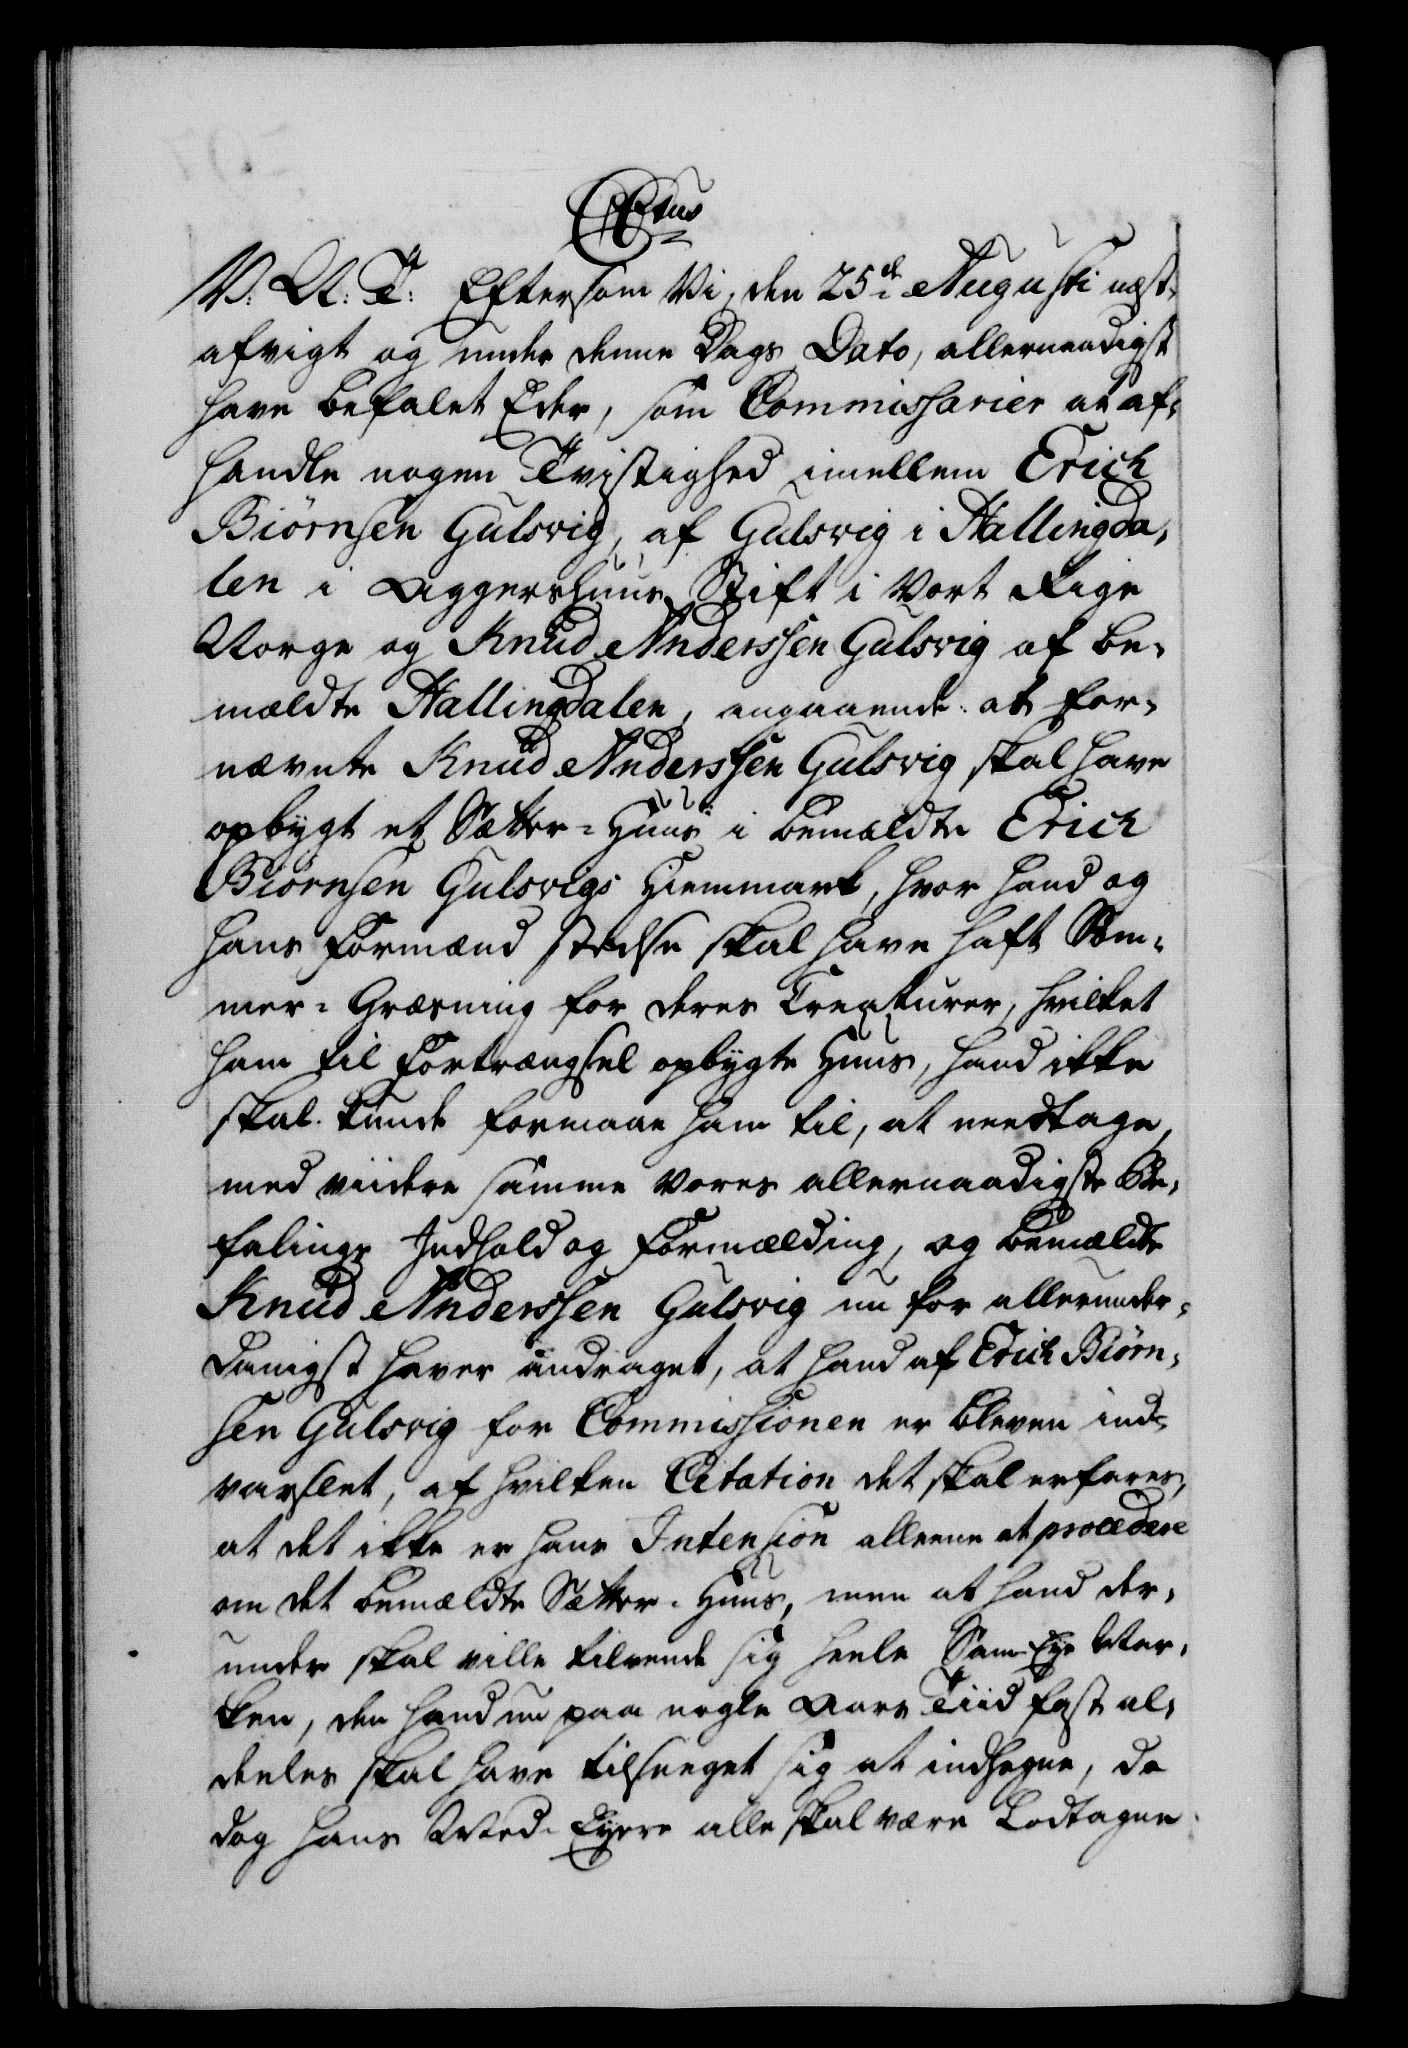 Ctus
V: A: T: Eftersom Vi, den 25de Augusti næst-
afvigt og under denne Dags Dato, allernaadigst
have befalet Eder, som Commissarier at af-
handle nogen Tvistighed imellem Erich
Biørnsen Gulsvig, af Gulsvig i Hallingda-
len i Aggershuus Stift i Vort Rige
Norge og Knud Anderssen Gulsvig af be-
mældte Hallingdalen, angaaende at for-
nævnte Knud Anderssen Gulsvig skal have
opbygt et Sætter-Huus i bemældte Erich
Biørnsen Gulsvigs Hiemmark, hvor hand og
hans Formænd stedse skal have haft Som-
mer-Græsning for deres Creaturer, hvilket
ham til Fortrængsel opbygte Huus, hand ikke
skal kunde formaae ham til, at needtage,
med viidere samme Vores allernaadigste Be-
falings Indhold og Formælding, og bemældte
Knud Anderssen Gulsvig nu for allerunder-
danigst haver andraget, at hand af Erich Biørn-
sen Gulsvig for Commissionen er bleven ind-
varslet, af hvilken Citation det skal erfares,
at det ikke er hans Intension alleene at procedere
om det bemældte Sætter-Huus, men at hand der-
under skal ville tilvende sig heele Sam-Eye Mar-
ken, den hand nu paa nogle Aars Tiid fast al-
deeles skal have tilsneget sig at indhegne, da
dog hans Med-Eyere alle skal være Lodtagne